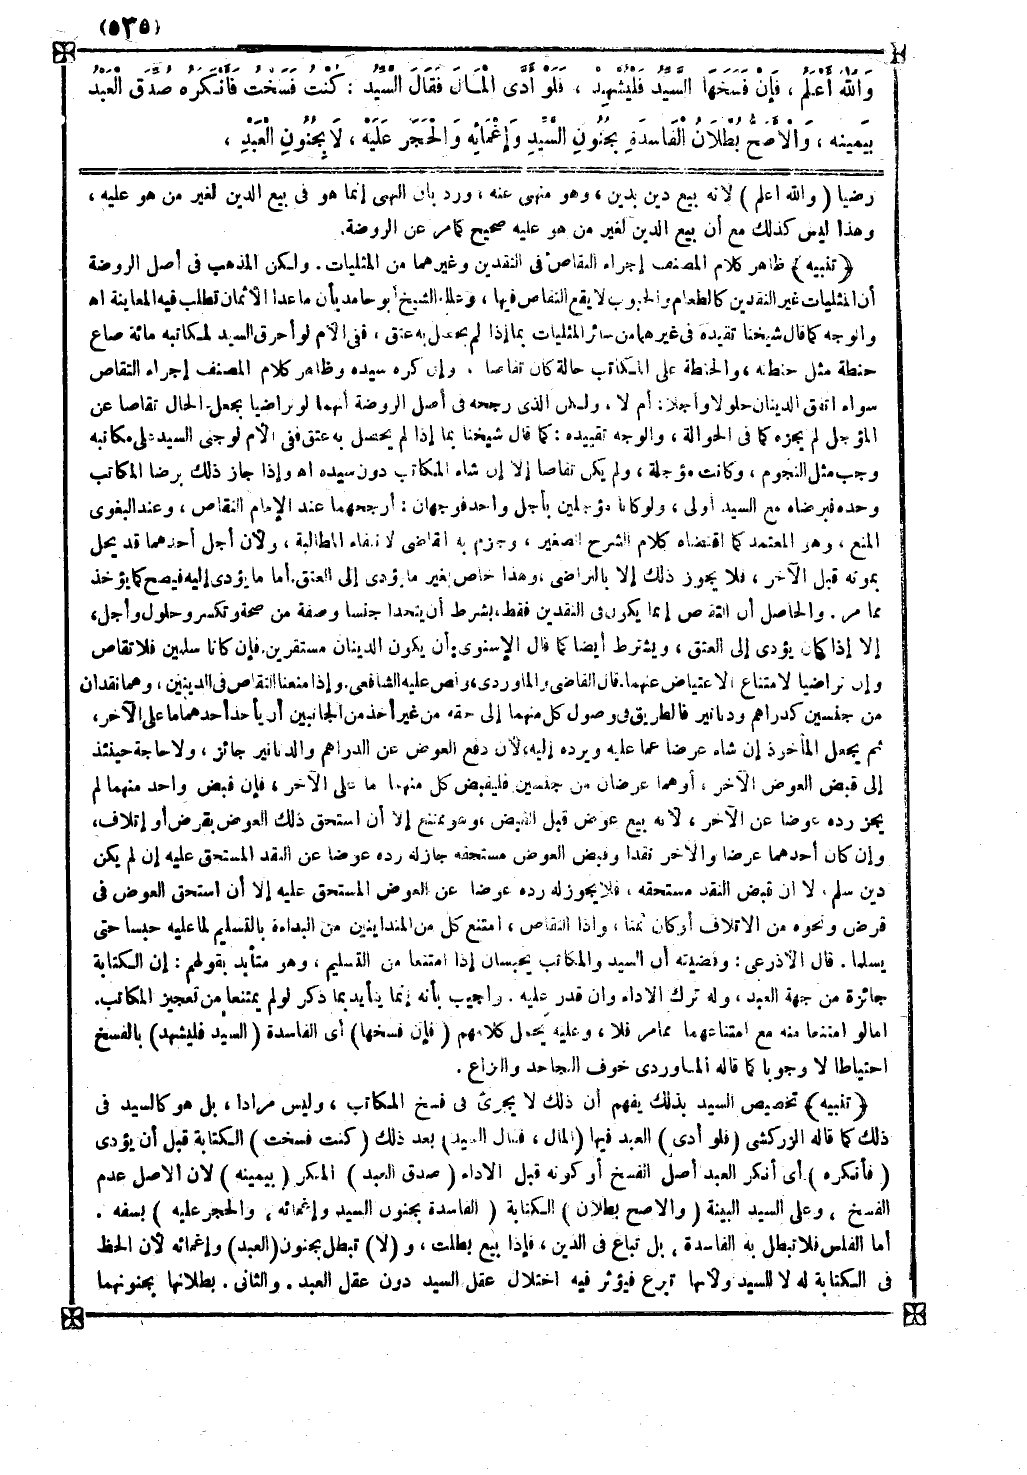 (٥٣٥)
وَاللهُ أَعْلَمُ ، فَإِنْ فَسَخَهَا السَّيِّدُ فَلْيُشْهِدْ ، فَلَوْ أَدَّى الْمَالَ فَقَالَ السَّيِّدُ : كُنْتُ فَسَخْتُ فَأَنْكَرَهُ صُدِّقَ الْعَبْدُ
بِيَمِينِهِ ، وَالْأَصَحُّ بُطْلَانُ الْفَاسِدَةِ بِجُنُونِ السَّيِّدِ وَإِغْمَائِهِ وَالْحَجْرِ عَلَيْهِ ، لَا بِجُنُونِ الْعَبْدِ ،
رضيا ( والله أعلم ) لانه بيع دين بدين ، وهو منهى عنه ، ورد بأن النهى إنما هو فى بيع الدين لغير من هو عليه ،
وهذا ليس كذلك مع أن بيع الدين لغير من هو عليه صحيح كمامر عن الروضة.
﴿ تنبيه ﴾ ظاهر كلام المصنف إجراء التقاص فى النقدين وغيرهما من المثليات . ولكن المذهب فى أصل الروضة
أن المثليات غير النقدين كالطعام والحبوب لا يقع التقاص فيها ، وعلله الشيخ أبو حامد بأن ما عدا الأثمان تطلب فيه المعاينة اه
والوجه كما قال شيخنا تقييده فى غيرهما من سائر المثليات بما إذا لم يحصل به عتق ، ففى الأم لو أحرق السيد لمكاتبه مائة صاع
حنطة مثل حنطته ، والحنطة على المكاتب حالة كان تقاصا . وإن كره سيده وظاهر كلام المصنف إجراء التقاص
سواء اتفق الدينان حلولا وأجلا أم لا . ولكن الذى رجحه فى أصل الروضة أنهما لو تراضيا بجعل الحال تقاصا عن
المؤجل لم يجزه كما فى الحوالة ، والوجه تقييده : كما قال شيخنا بما إذا لم يحصل به عتق ففى الأم لو جنى السيد على مكاتبه
وجب مثل النجوم ، وكانت مؤجلة ، ولم يكن تقاصا إلا إن شاء المكاتب دون سيده اه وإذا جاز ذلك برضا المكاتب
وحده فبرضاه مع السيد أولى ، ولو كانا مؤجلين بأجل واحد فوجهان : أرجحهما عند الإمام التقاص ، وعند البغوى
المنع ، وهو المعتمد كما اقتضاه كلام الشرح الصغير ، وجزم به القاضى لانتفاء المطالبة ، ولأن أجل أحدهما قد يحل
بموته قبل الآخر ، فلا يجوز ذلك إلا بالتراضى ، وهذا خاص بغير ما يؤدى إلى العتق.أما ما يؤدى إليه فيصح كما يؤخذ
مما مر . والحاصل أن التقاص إنما يكون فى النقدين فقط، بشرط أن يتحدا جنسا وصفة من صحة وتكسر وحلول وأجل،
إلا إذا كان يؤدى إلى العتق ، ويشترط أيضا كما قال الإسنوى: أن يكون الدينان مستقرين. فإن كانا سلمين فلا تقاص
وإن تراضيا لامتناع الاعتياض عنهما. قال القاضى والماوردى، ونص عليه الشافعى. وإذا منعنا التقاص فى الدينين ، وهما نقدان
من جنسين كدراهم ودنانير فالطريق فى وصول كل منهما إلى حقه من غير أخذ من الجانبين أن يأخذ أحدهما ما على الآخر،
ثم يجعل المأخوذ إن شاء عوضا عما عليه ويرده إليه، لأن دفع العوض عن الدراهم والدنانير جائز ، ولا حاجة حينئذ
إلى قبض العوض الآخر ، أو هما عرضان من جنسين فليقبض كل منهما ما على الآخر ، فإن قبض واحد منهما لم
يجز رده عوضا عن الآخر ، لأنه بيع عرض قبل القبض ، وهو ممتنع إلا أن استحق ذلك العوض بقرض أو إتلاف،
وإن كان أحدهما عرضا والآخر نقدا وقبض العوض مستحقه جاز له رده عوضا عن النقد المستحق عليه إن لم يكن
دين سلم ، لا إن قبض النقد مستحقه ، فلا يجوز له رده عوضا عن العوض المستحق عليه إلا أن استحق العوض فى
قرض ونحوه من الاتلاف أو كان ثمنا ، وإذا التقاص ، امتنع كل من المتداينين من البداءة بالتسليم لما عليه حبسا حتى
يسلما . قال الأذرعى : وقضيته أن السيد والمكاتب يحبسان إذا امتنعا من التسليم ، وهو متأيد بقولهم : إن الكتابة
جائزة من جهة العبد ، وله ترك الاداء وان قدر عليه . وأجيب بأنه إنما يتأيد بما ذكر لو لم يمتنعا من تعجيز المكاتب.
أما لو امتنعا منه مع امتناعهما مما مر فلا ، وعليه يحمل كلامهم ( فإن فسخها) أى الفاسدة ( السيد فليشهد) بالفسخ
احتياطا لا وجوبا كما قاله الماوردى خوف التجاحد والنزاع .
﴿ تنبيه ﴾ تخصيص السيد بذلك يفهم أن ذلك لا يجرئ فى فسخ المكاتب ، وليس مرادا ، بل هو كالسيد فى
ذلك كما قاله الزركشى (فلو أدى ) العبد فيها (المال ، فقال السيد) بعد ذلك ( كنت فسخت ) الكتابة قبل أن يؤدى
( فأنكره ) أى أنكر العبد أصل الفسخ أو كونه قبل الاداء ( صدق العبد ) المنكر ( بيمينه ) لان الاصل عدم
الفسخ ، وعلى السيد البينة ( والاصح بطلان ) الكتابة ( الفاسدة بجنون السيد وإغمائه ، والحجر عليه ) بسفه .
أما الفلس فلا تبطل به الفاسدة ، بل تباع فى الدين ، فإذا بيع بطلت ، و ( لا ) تبطل بجنون ( العبد ) وإغمائه لأن الحظ
فى الكتابة له لا للسيد ولأنها تبرع فيؤثر فيه اختلال عقل السيد دون عقل العبد . والثانى . بطلانها بجنونهما